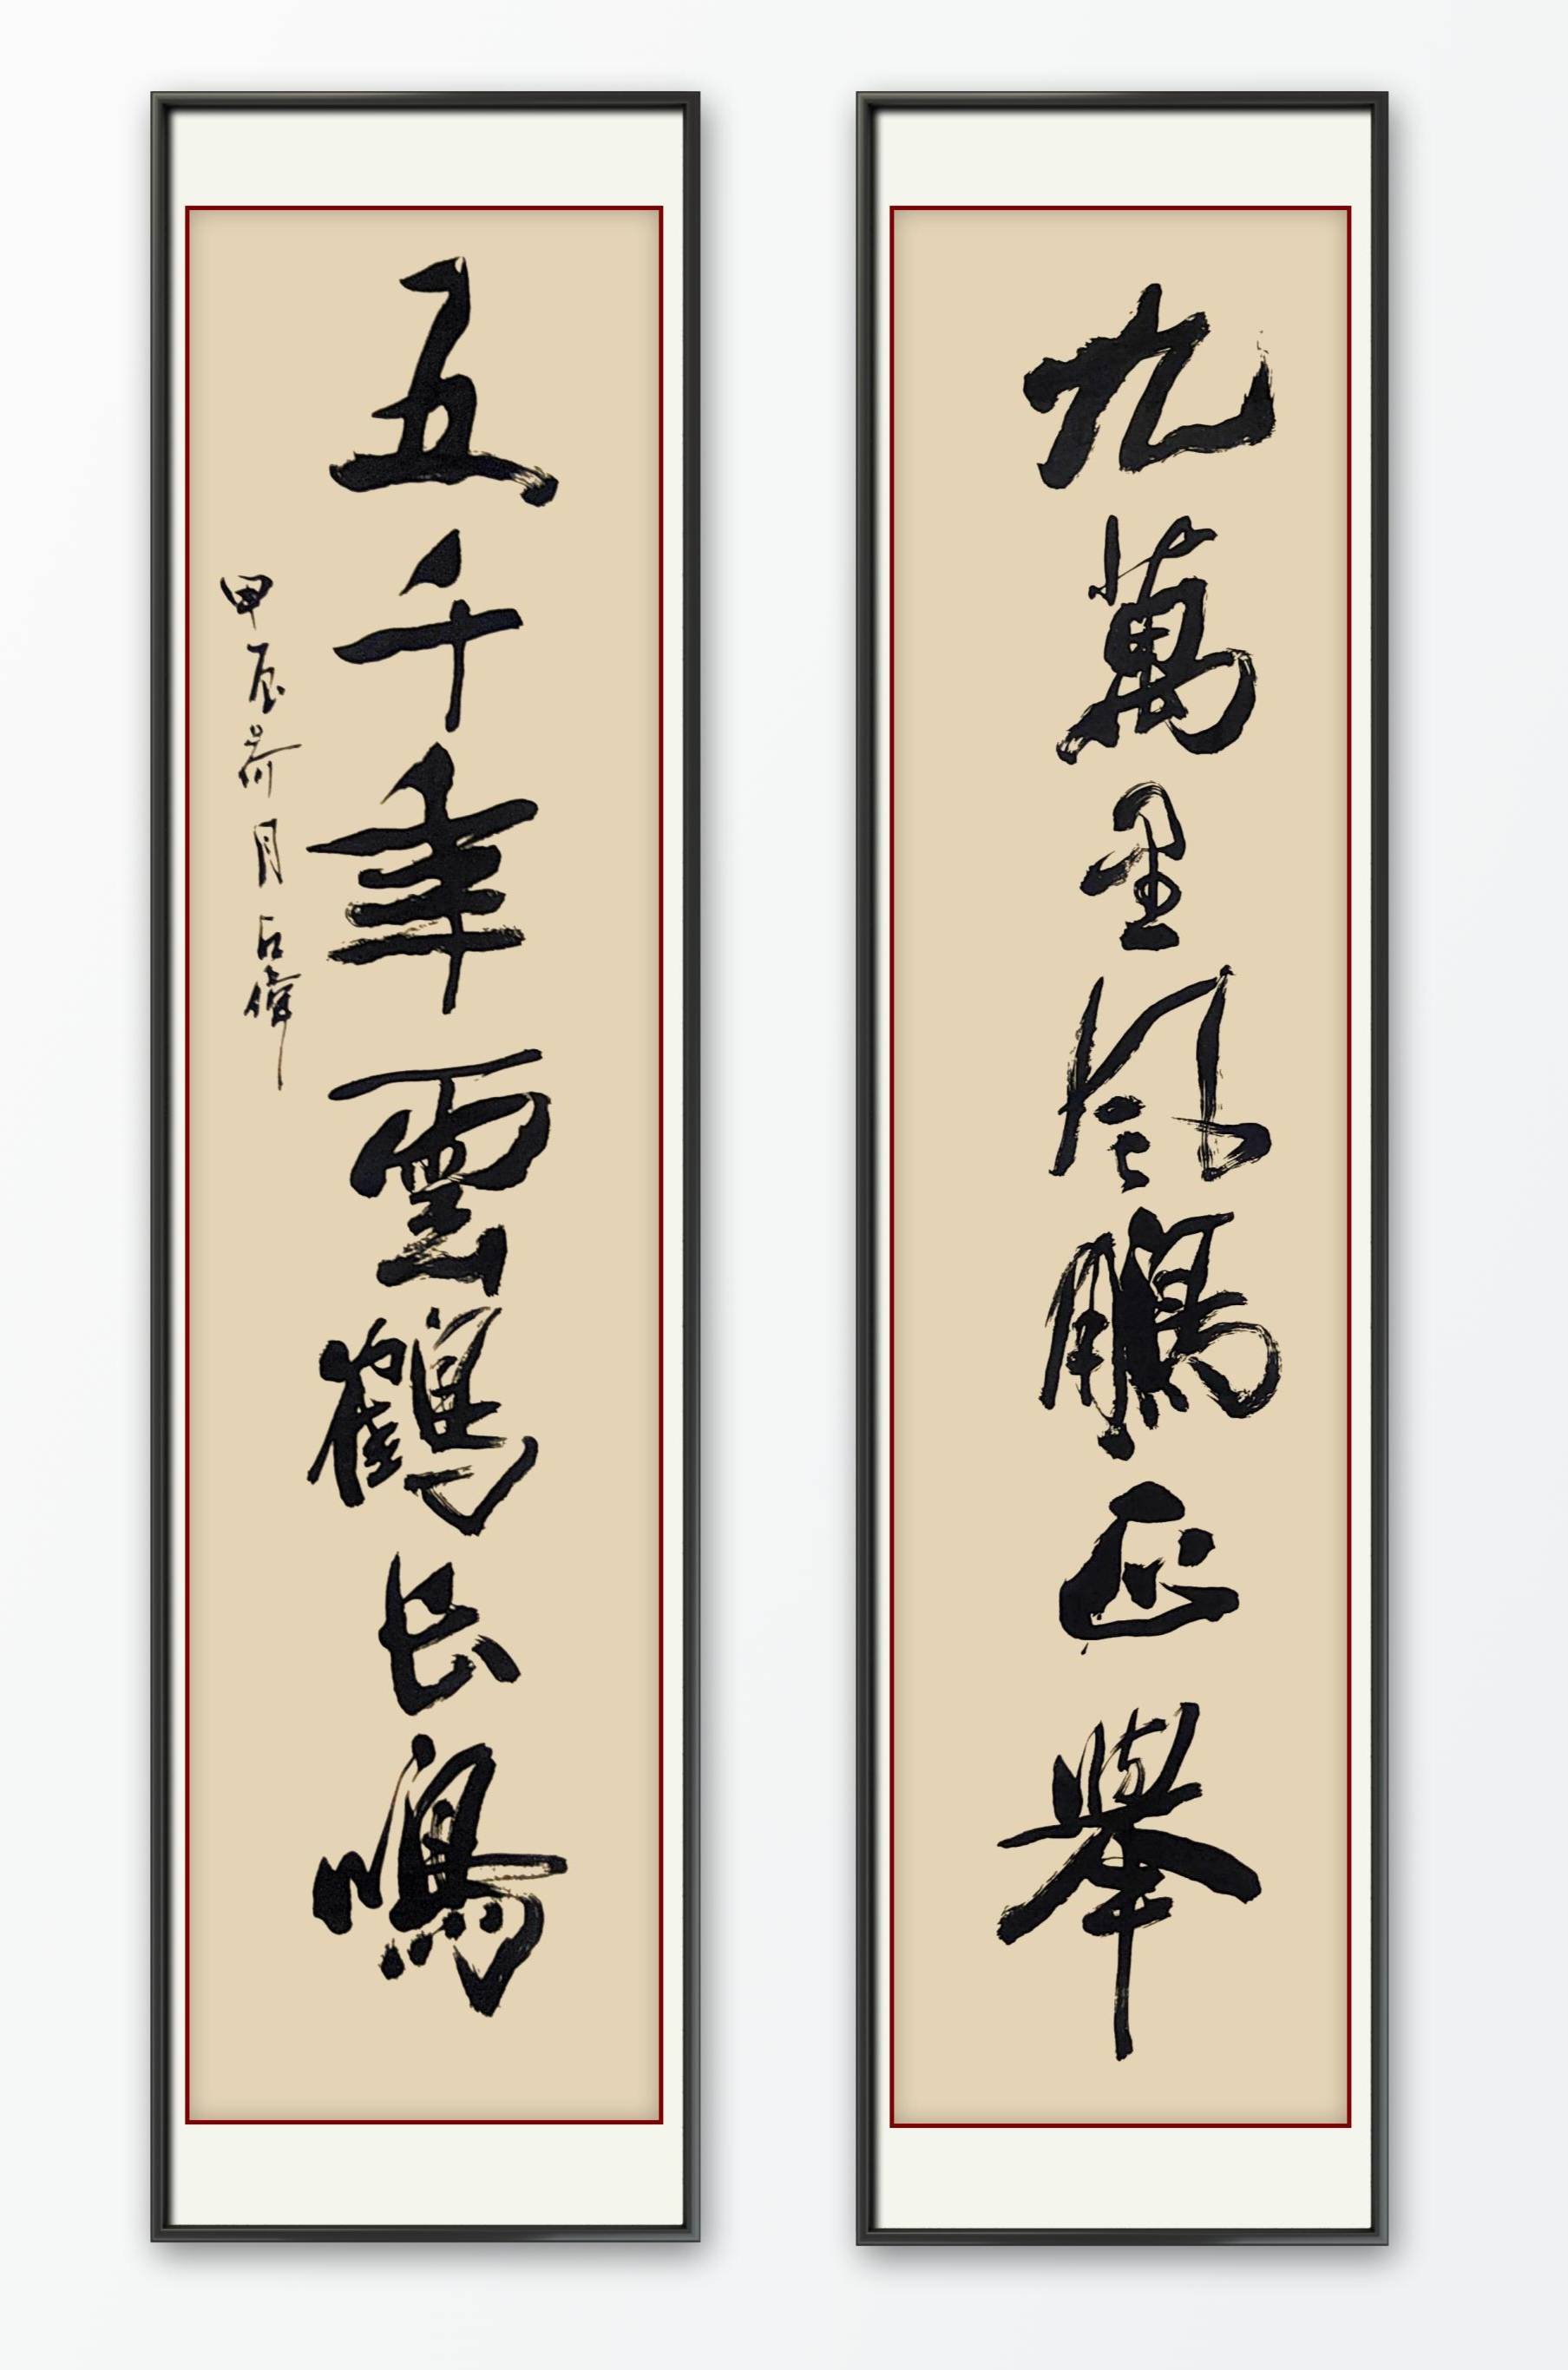 九萬里風鵬正舉
五千年雲鶴長鳴
甲辰荷月石偉